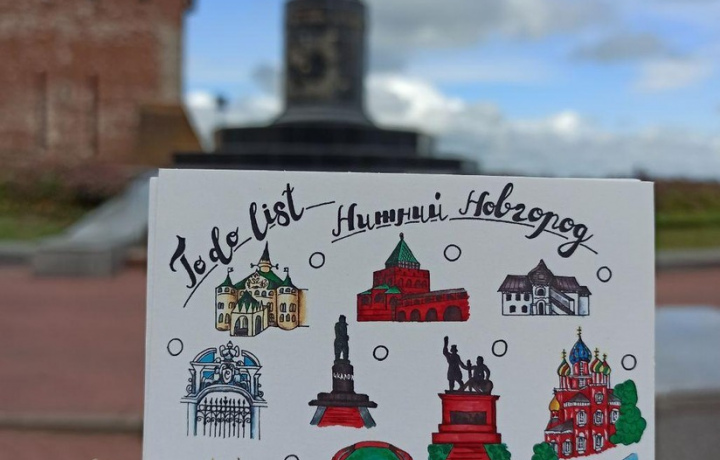 To do list — Нижний Новгород